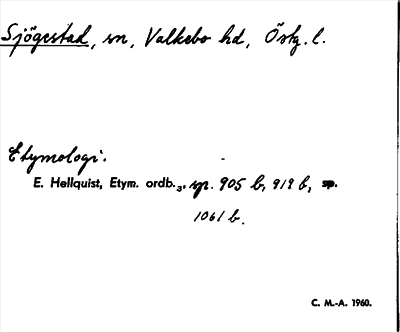 Sjögestad, sn, Valkebo hd, Östg. l.
Etymologi.
E. Hellquist, Etym. ordb.3, sp. 905 b, 919 b,
1061 b.
C. M.-A. 1960.